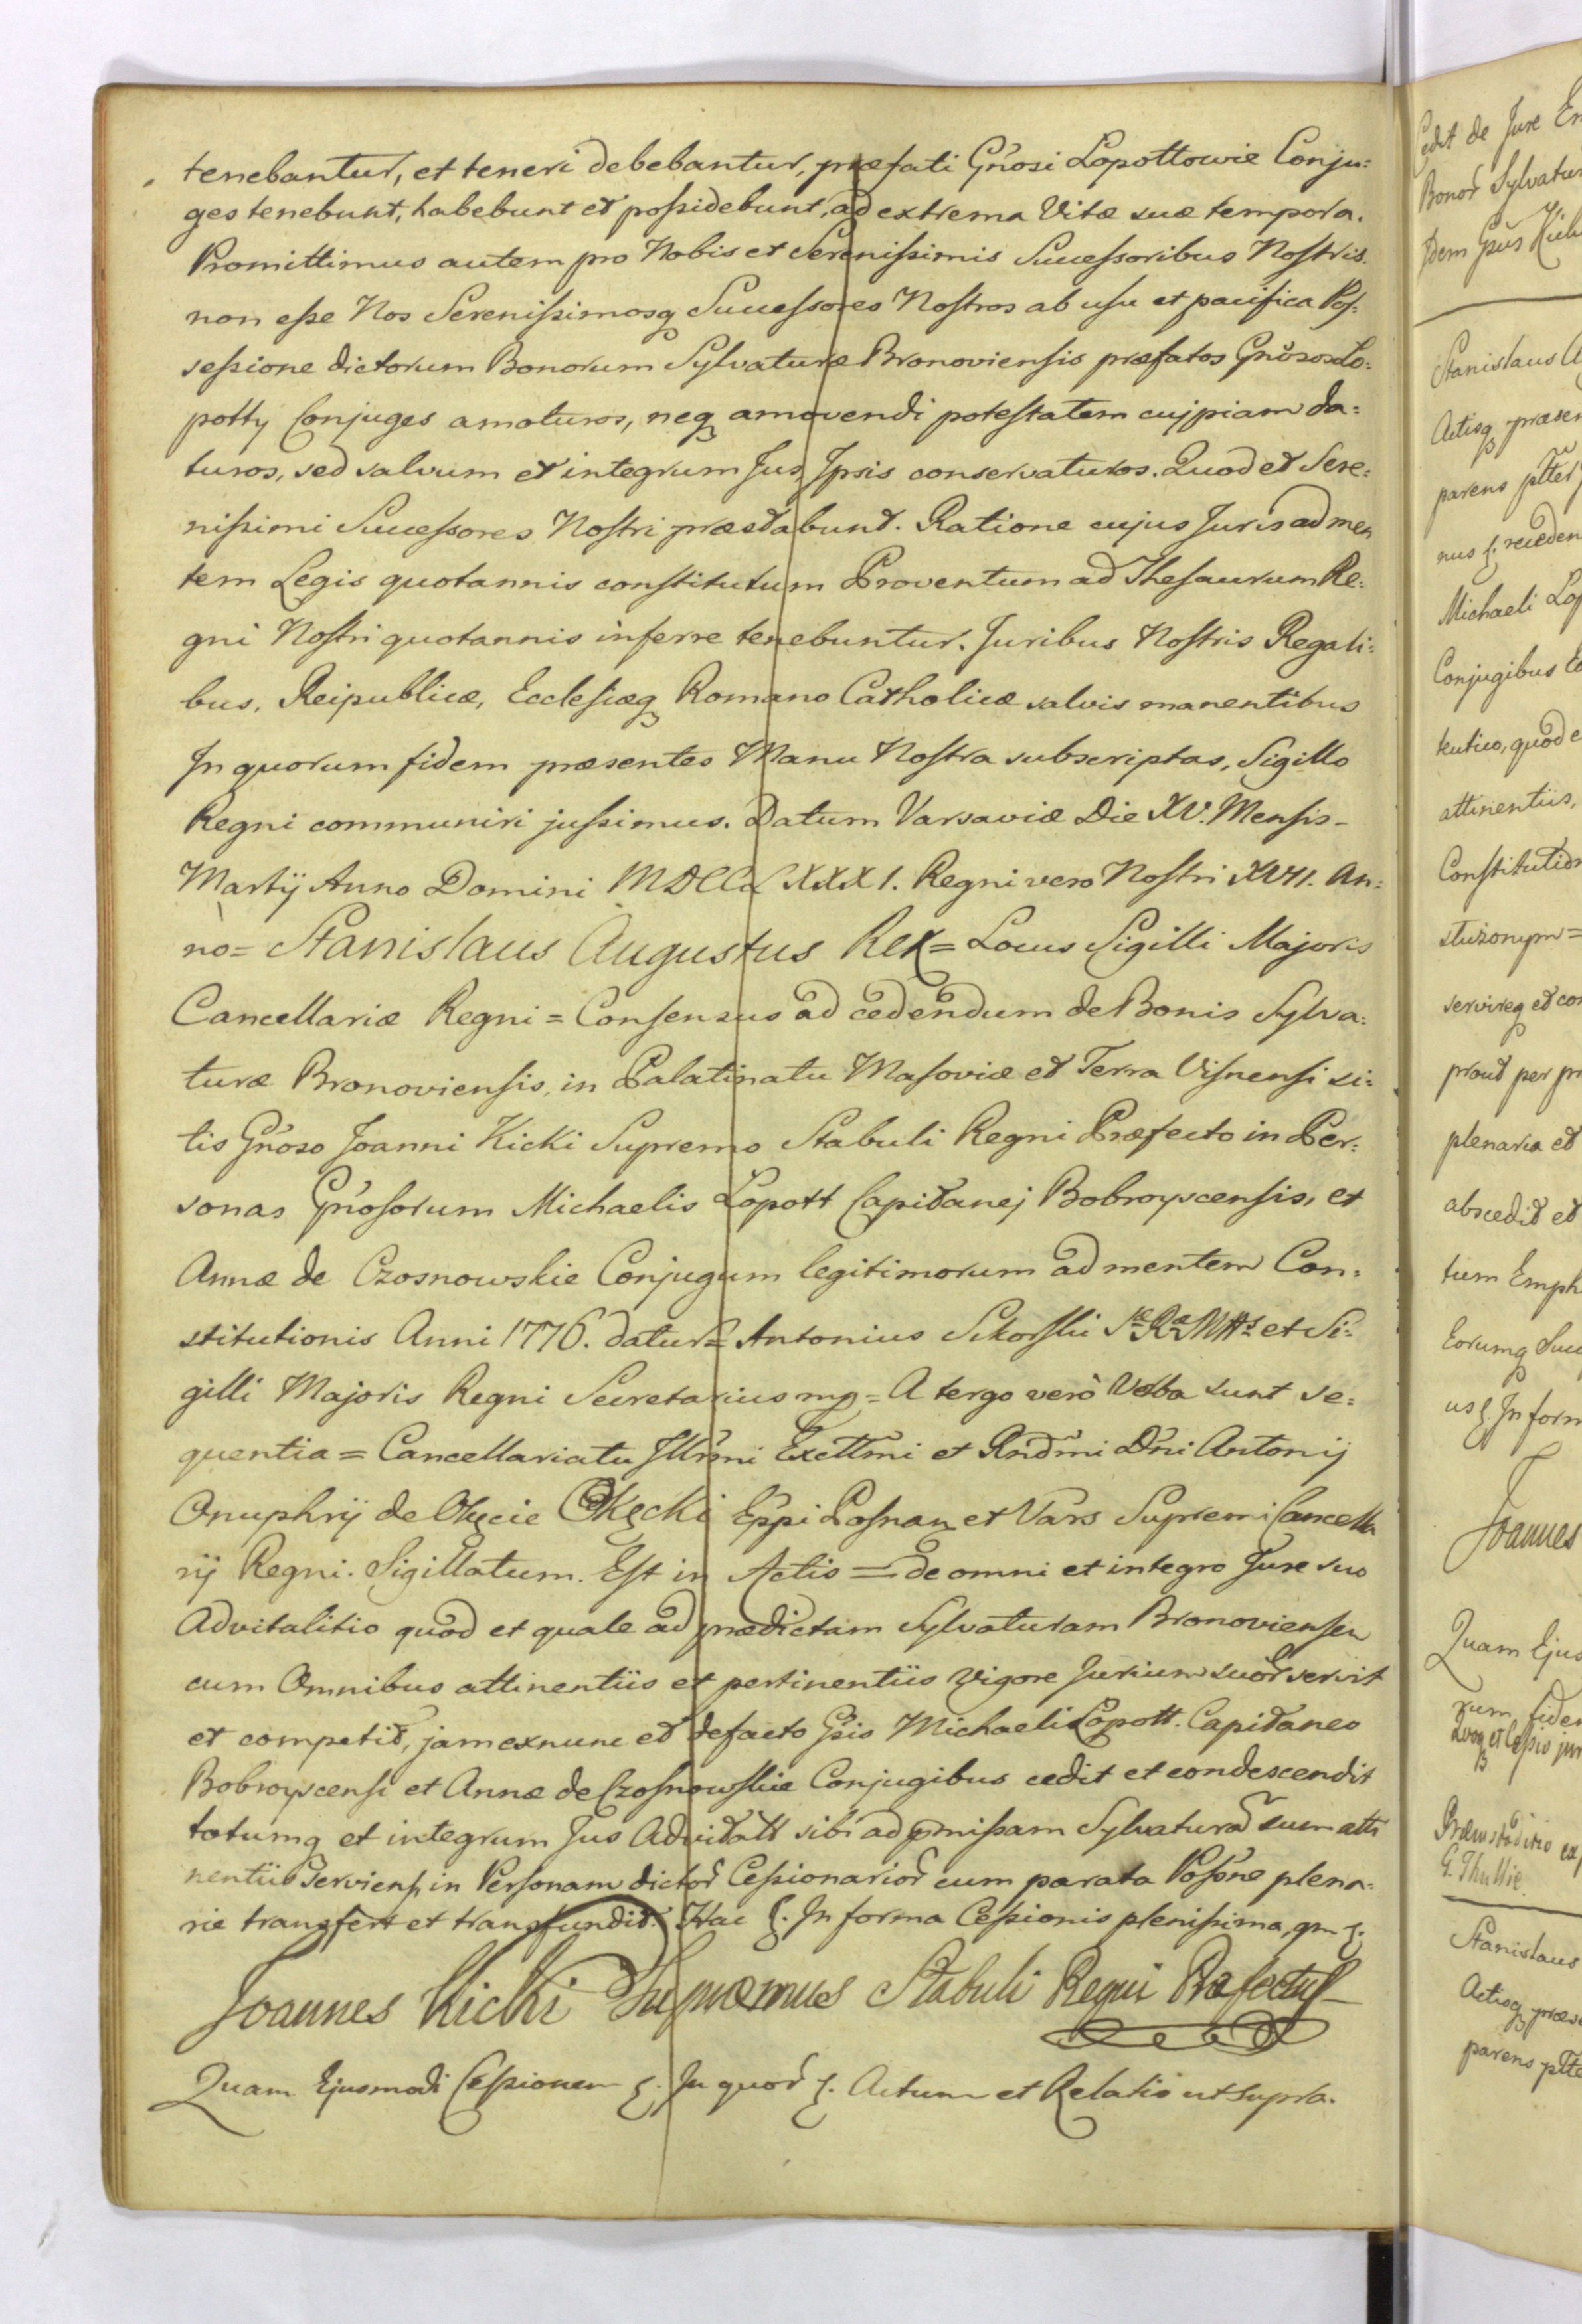 tenebantur, et teneri debebantur, præfati Gn̄osi Lopottowie Conju=
ges tenebunt, habebunt et poſsidebunt, ad extrema Vitæ suæ tempora.
Promittimus autem pro Nobis et Sereniſsimis Succeſsoribus Noſtris
non eſse Nos Sereniſsimosq Succeſsores Noſtros ab uſu et pacifica Poſ=
seſsione dictorum Bonorum Sylvaturæ Bronovienſis præfatos Gn̄osos Lo=
potty Conjuges amoturos, neq amovendi poteſtatem cujpiam da=
turos, sed salvum et integrum Jus Jpsis conservaturos. Quod et Sere=
niſsimi Succeſsores Noſtri præstabunt. Ratione cujus Juris ad men
tem Legis quotannis conſtitutum Proventum ad Theſaurum Re=
gni Noſtri quotannis inferre tenebuntur. Juribus Noſtris Regali=
bus, Reipublicæ, Eccleſiæq Romano Catholicæ salvis manentibus
Jn quorum fidem præsentes Manu Noſtra subscriptas, Sigillo
Regni communiri juſsimus. Datum Varsaviæ Die XV. Menſis –
Martij Anno Domini MDCCLXXX1. Regni vero Noſtri XVII. An=
no = Stanislaus Augustus Rex = Locus Sigilli Majoris
Cancellariæ Regni = Conſensus ad cedendum de Bonis Sylva=
turæ Bronovienſis, in Palatinatu Maſoviæ et Terra Viſnenſi si=
tis Gn̄oso Joanni Kicki Supremo Stabuli Regni Præfecto in Per=
sonas Gn̄oſorum Michaelis Lopott Capitanej Bobroyscensis, et
Annæ de Czosnowskie Conjugum legitimorum ad mentem Con=
stitutionis Anni 1776. datur = Antonius Sikorſki Sæ Ræ Mttis et Si=
gilli Majoris Regni Secretarius mp = A tergo verò Verba sunt se=
quentia = Cancellariatu Jllr̄mi Excttm̄i et Rnd̄mi Dn̄i Antonij
Onuphrij de Okęcie Okęcki Ep̄pi Poſnan et Vars Supremi Cancella
rij Regni. Sigillatum. Eſt in Actis = de omni et integro Jure suo
Advitalitio quod et quale ad prædictam Sylvaturam Bronovienſem
cum Omnibus attinentiis et pertinentiis vigore Jurium suor̄ servit
et competit, jam exnunc et defacto Gs̄is Michaeli Lopott. Capitaneo
Bobroyscenſi et Annæ de Czoſnowſkie Conjugibus cedit et condescendit
totumq et integrum Jus Advitalt sibi ad præmiſsam Sylvatura cum atti
nentiis Servienſ in Perſonam dictor̄ Ceſsionarior̄ cum parata Poſsne plena=
rie transfert et transfundit. Hac ſ. Jn forma Ceſsionis pleniſsima, qm ſ.
Joannes Kicki Supræmus Stabuli Regni Præfectus
Quam Ejusmodi Ceſsionem ſ. Jn quor̄ ſ. Actum et Relatio ut supra.
Cedit de Jure
Bonor̄ Sylvatur
Stanislaus
Actisq præsen
Michaeli Lop
Conjugibus
attinentiis,
Conſtitution
servireq et con
prout per pr
plenaria et
abscedit et
tum Emph
Eorumq Succ
us ſ. Jn form
Joannes
Quam Ejus
rum fidem
Stanislaus
Actisq præse